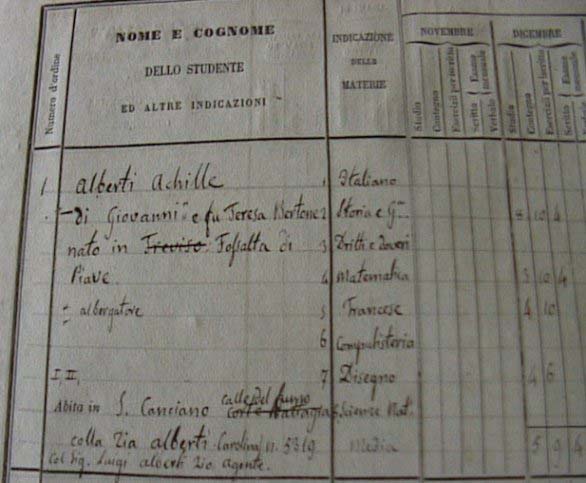 Numero d'ordine
NOME E COGNOME
DELLO STUDENTE
ED ALTRE INDICAZIONI
INDICAZIONE
DELLE
MATERIE
NOVEMBRE
DICEMBRE
Studio
Contegno
Esercizii per iscritto
Esame mensuale
Scritto
Verbale
Studio
Contegno
Esercizii per iscritto
Esame mensuale
Scritto
1 Alberti Achille
1 Italiano
di Giovanni e fu Teresa Bertone
2 Storia e G
8 10 4
nato in Treviso Fossalta di
3 Dritti e doveri
Piave
4 Matematica
3 10 4
albergatore
5 Francese
4 10
6 Computisteria
I, II,
7 Disegno
4 6
calle del fumo
Abita in S. Canciano Corte
Scienze Nat.
colla Zia Alberti Carolina n. 5319
Media
5 9 4
Col Sig. Luigi Alberti Zio agente.